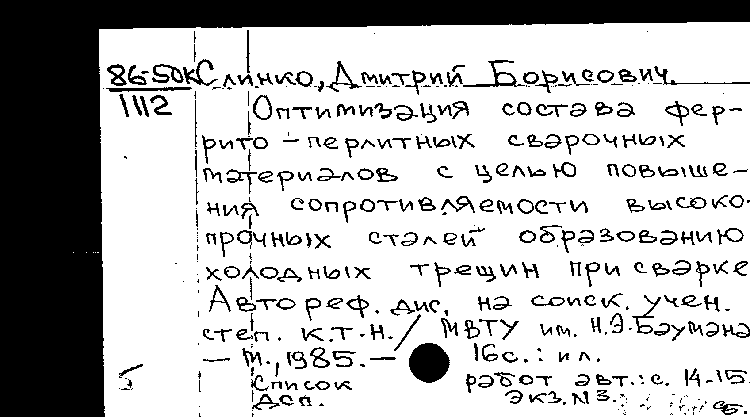 86-50к Слинко, Дмитрий Борисович.
1112 Оптимизация состава фер-
рито-перлитных сварочных
материалов с целью повыше-
ния сопротивляемости высоко-
прочных сталей образованию
холодных трещин при сварке
Автореф. дис. на соиск. учен.
степ. к.т.н. / МВТУ им. Н.Э.Баумана
— М., 1985. — 16с.: ил.
Список работ авт.: с. 14-15
ДСП. Экз. N3.